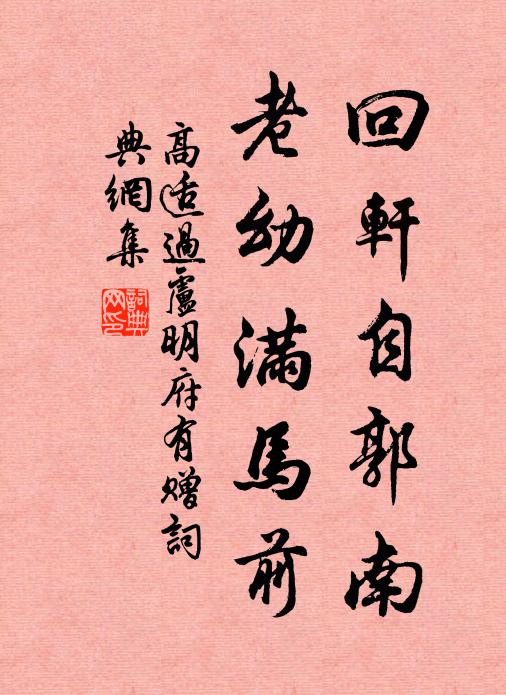 回軒自郭南
老幼滿馬前
高适過盧明府有贈詞
典網集
詞典網印